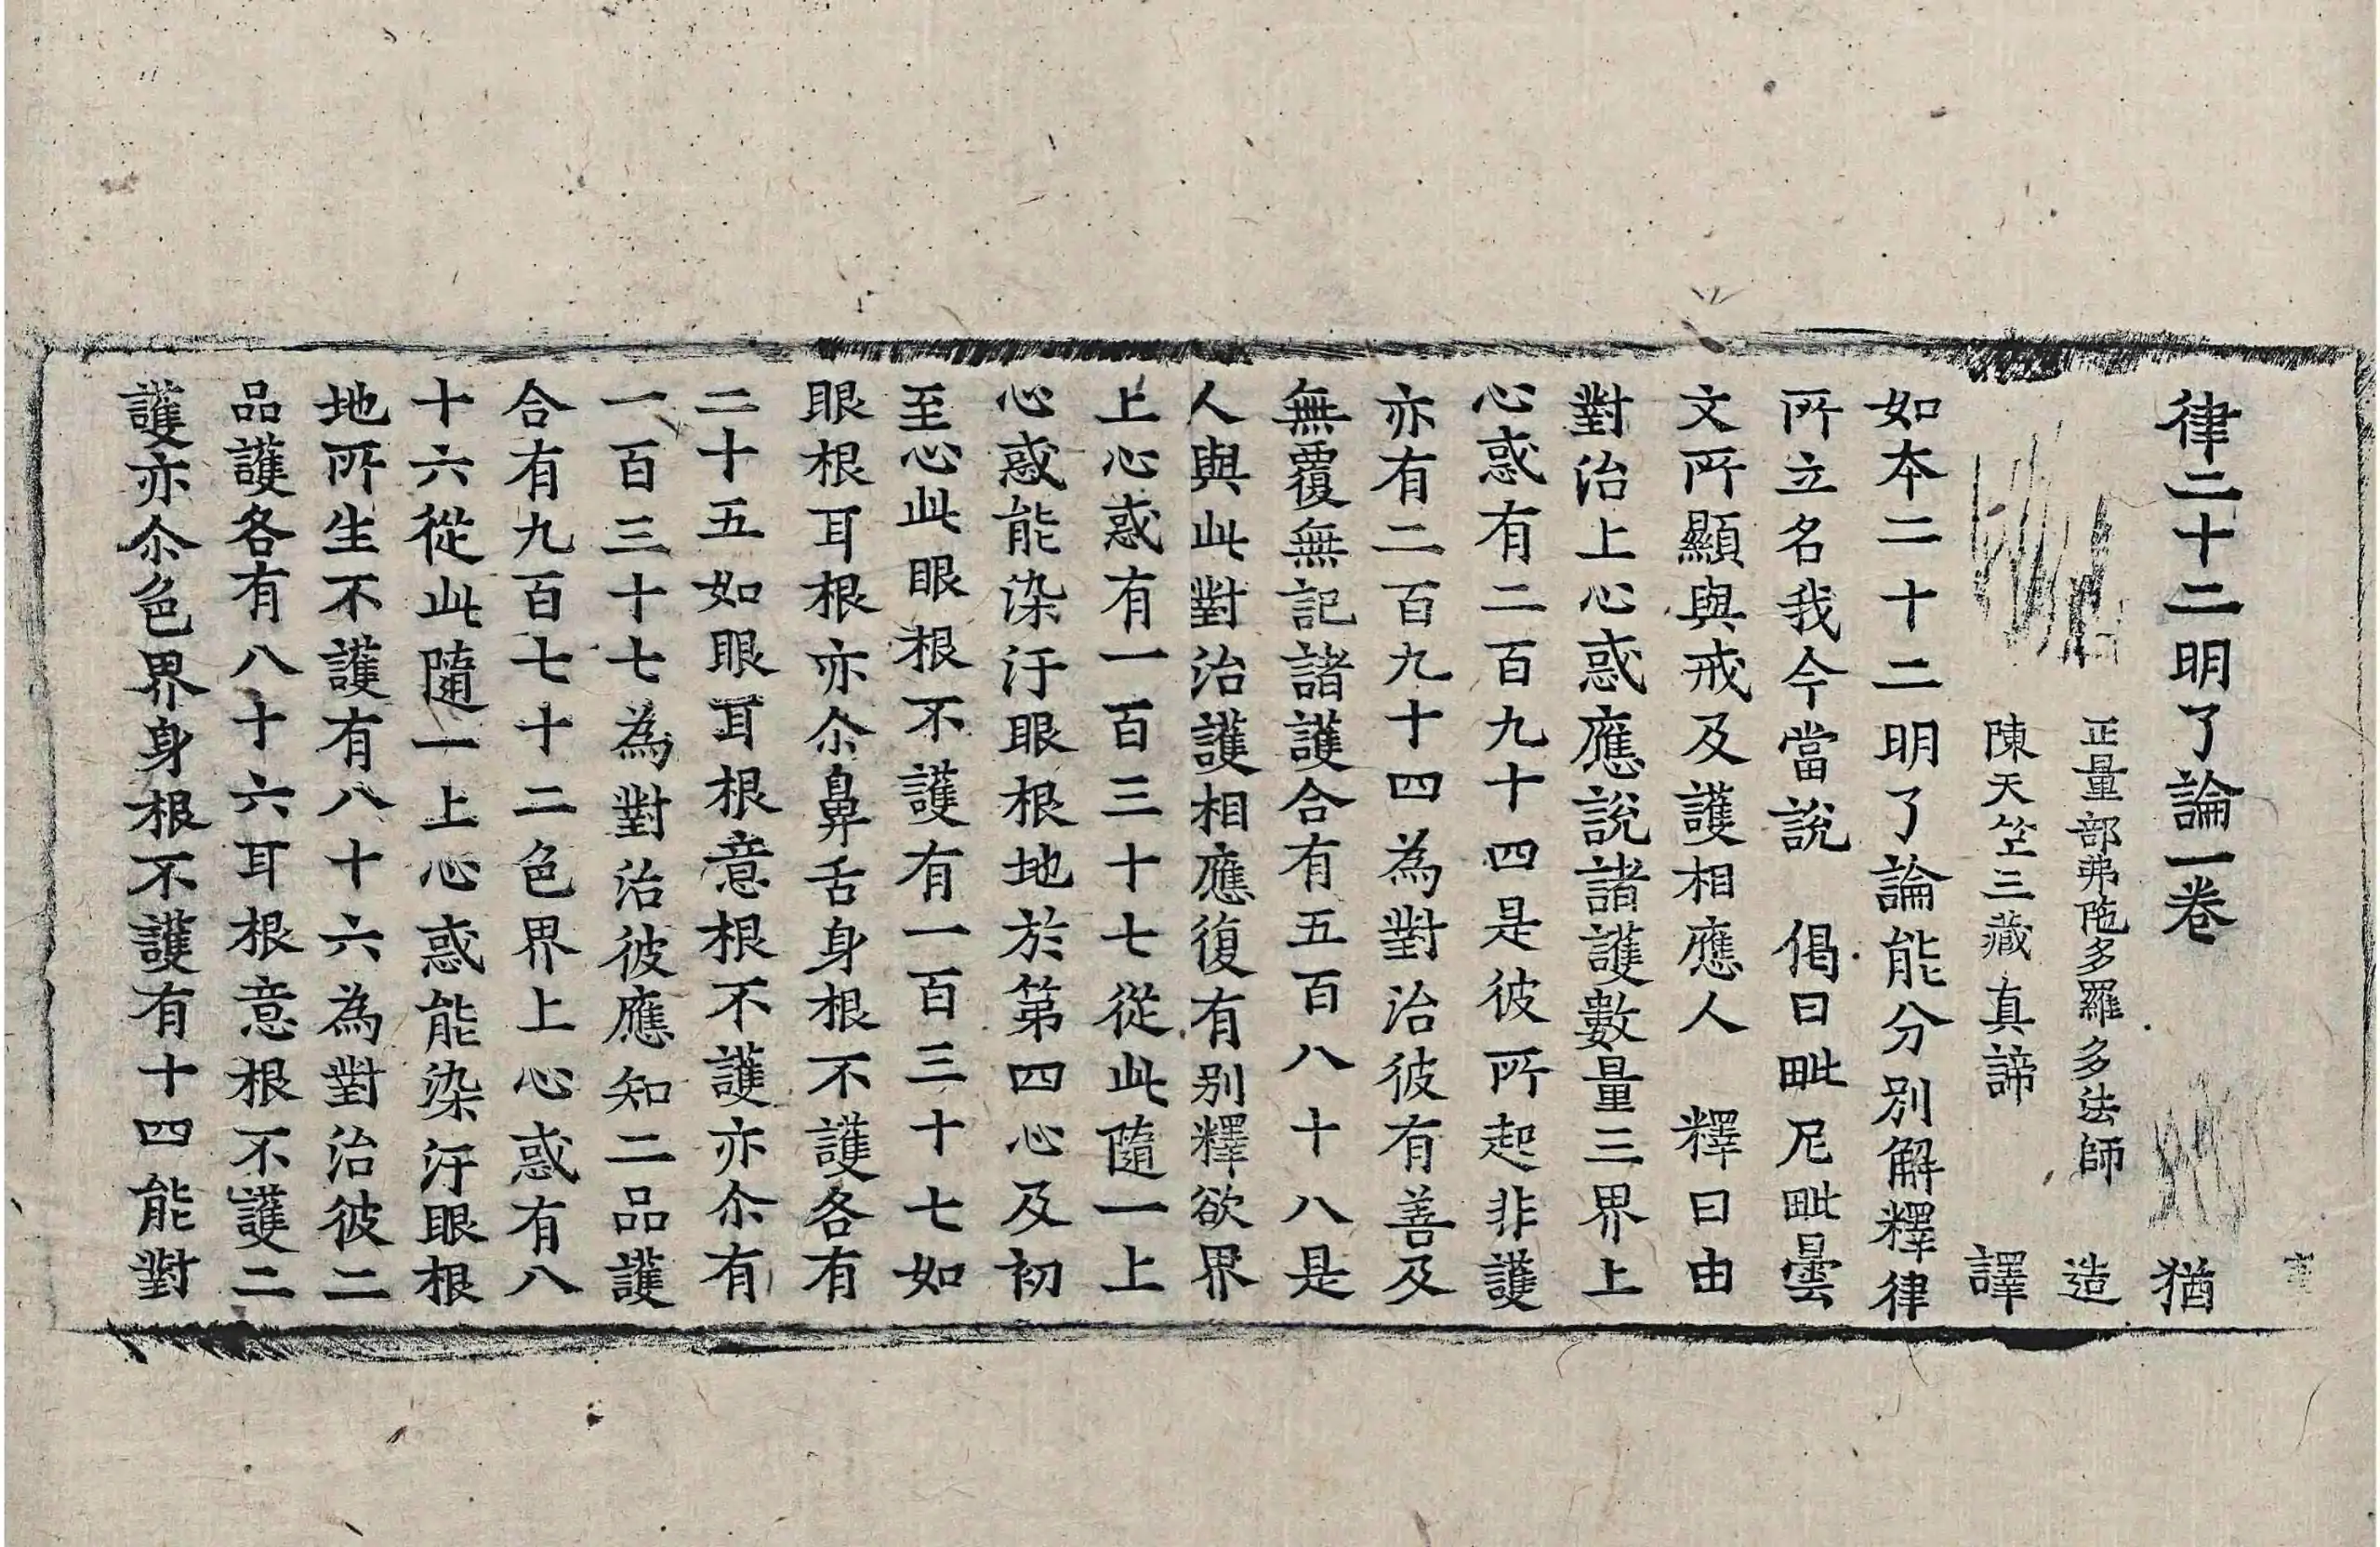 律二十二明了論一卷 猶
正量部弗陁多羅多法師 造
陳天竺三藏真諦 譯
如本二十二明了論能分別解釋律
所立名我今當說 偈曰毗尼毗曇
文所顯與戒及護相應人 釋曰由
對治上心惑應說諸護數量三界上
心惑有二百九十四是彼所起非護
亦有二百九十四為對治彼有善及
無覆無記諸護合有五百八十八是
人與此對治護相應復有別釋欲界
上心惑有一百三十七從此隨一上
心惑能染汙眼根地於第四心及初
至心此眼根不護有一百三十七如
眼根耳根亦尒鼻舌身根不護各有
二十五如眼耳根意根不護亦尒有
一百三十七為對治彼應知二品護
合有九百七十二色界上心惑有八
十六從此隨一上心惑能染汙眼根
地所生不護有八十六為對治彼二
品護各有八十六耳根意根不護二
護亦尒色界身根不護有十四能對